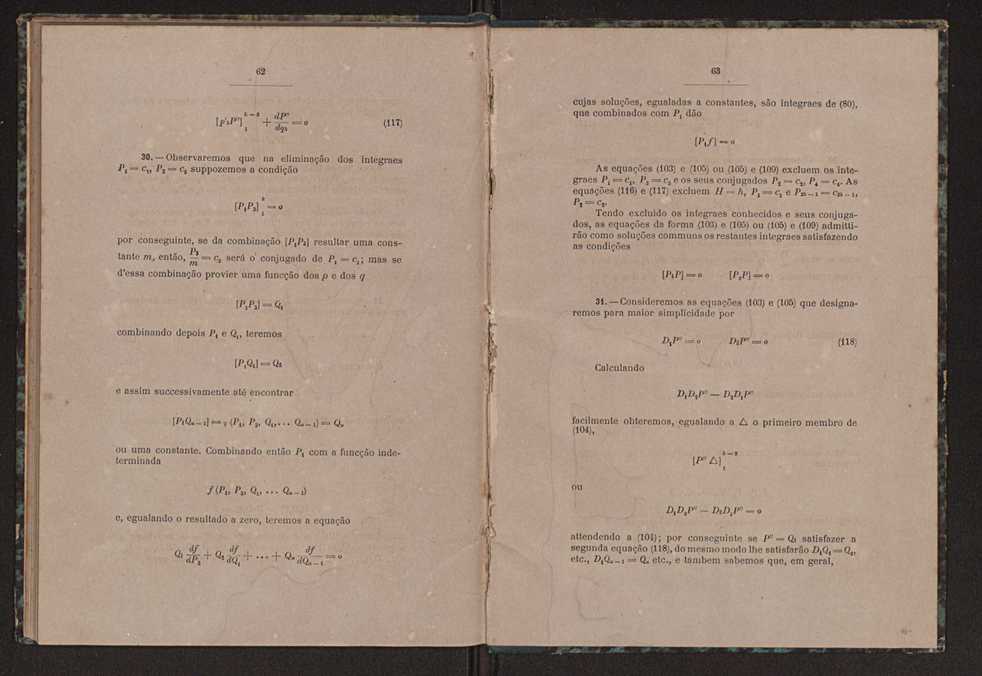 62
[P'₁P''] ₁ ᵏ⁻² + dP''/dq₁ = o (117)
30. — Observaremos que na eliminação dos integraes
P₁ = c₁, P₂ = c₂ suppozemos a condição
[P₁P₃] ₁ ᵏ = o
por conseguinte, se da combinação [P₁P₃] resultar uma cons-
tante m, então, P₃/m = c₂ será o conjugado de P₁ = c₁; mas se
d'essa combinação provier uma funcção dos p e dos q
[P₁P₃] = Q₁
combinando depois P₁ e Q₁, teremos
[P₁Q₁] = Q₂
e assim successivamente até encontrar
[P₁Qₙ₋₁] = ᵩ (P₁, P₃, Q₁, ... Qₙ₋₁) = Qₙ
ou uma constante. Combinando então P₁ com a funcção inde-
terminada
f (P₁, P₃, Q₁, ... Qₙ₋₁)
e, egualando o resultado a zero, teremos a equação
Q₁ df/dP₃ + Q₂ df/dQ₁ + ... + Qₙ df/dQₙ₋₁ = o
63
cujas soluções, egualadas a constantes, são integraes de (80),
que combinados com P₁ dão
[P₁f] = o
As equações (103) e (105) ou (105) e (109) excluem os inte-
graes P₁ = c₁, P₃ = c₃ e os seus conjugados P₂ = c₂, P₄ = c₄. As
equações (116) e (117) excluem H = h, P₁ = c₁ e P₂ₖ₋₁ = c₂ₖ₋₁,
P₂ = c₂.
Tendo excluido os integraes conhecidos e seus conjuga-
dos, as equações da forma (103) e (105) ou (105) e (109) admitti-
rão como soluções communs os restantes integraes satisfazendo
as condições
[P₁P] = o [P₂P] = o
31. — Consideremos as equações (103) e (105) que designa-
remos para maior simplicidade por
D₁P'' = o D₂P'' = o (118)
Calculando
D₁D₂P'' — D₂D₁P''
facilmente obteremos, egualando a △ o primeiro membro de
(104),
[P'' △] ₁ ᵏ⁻²
ou
D₁D₂P'' — D₂D₁P'' = o
attendendo a (104); por conseguinte se P'' = Q₁ satisfazer a
segunda equação (118), do mesmo modo lhe satisfarão D₁Q₁ = Q₂,
etc., D₁Qₙ₋₁ = Qₙ etc., e tambem sabemos que, em geral,